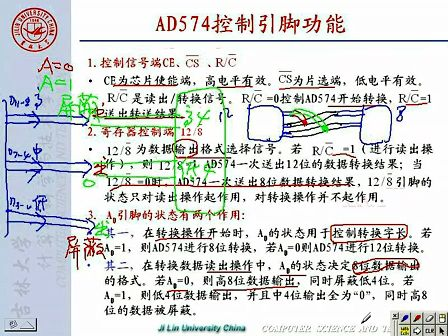 AD574控制引脚功能
1. 控制信号端CE、CS、R/C
• CE为芯片使能端，高电平有效。CS为片选端，低电平有效。
R/C 是读出/转换信号。R/C =0控制AD574开始转换，R/C=1
读出转送结果。
2. 寄存器控制端12/8
• 12/8 为数据输出格式选择信号。若 R/C =1（进行读出操
作），则 12/8=1 AD574一次送出12位的数据转换结果；当
12/8 =0时，AD574一次送出8位数据转换结果，12/8 引脚的
状态只对读出操作起作用，对转换操作并不起作用。
3. A0引脚的状态有两个作用：
其一，在转换操作开始时，A0的状态用于控制转换字长。若
A0=1，则AD574进行8位转换，若A0=0则AD574进行12位转换。
• 其二，在转换数据读出操作中，A0的状态决定8位数据输出
的格式。若A0=0，则高8位数据输出，同时屏蔽低4位。若
A0=1，则低4位数据输出，并且中4位输出全为“0”，同时高8
位的数据被屏蔽。
A=0
A=1
屏蔽
中
0
屏蔽
12
8
Ji Lin University China
COMPUTER SCIENCE AND